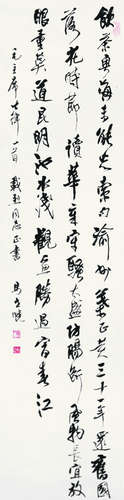 飲茶粵海未能忘索句渝州葉正黃三十一年還舊國
落花時節讀華章牢騷太盛防腸斷風物長宜放
眼量莫道昆明池水淺觀魚勝過富春江
毛主席七律一首 同志正書